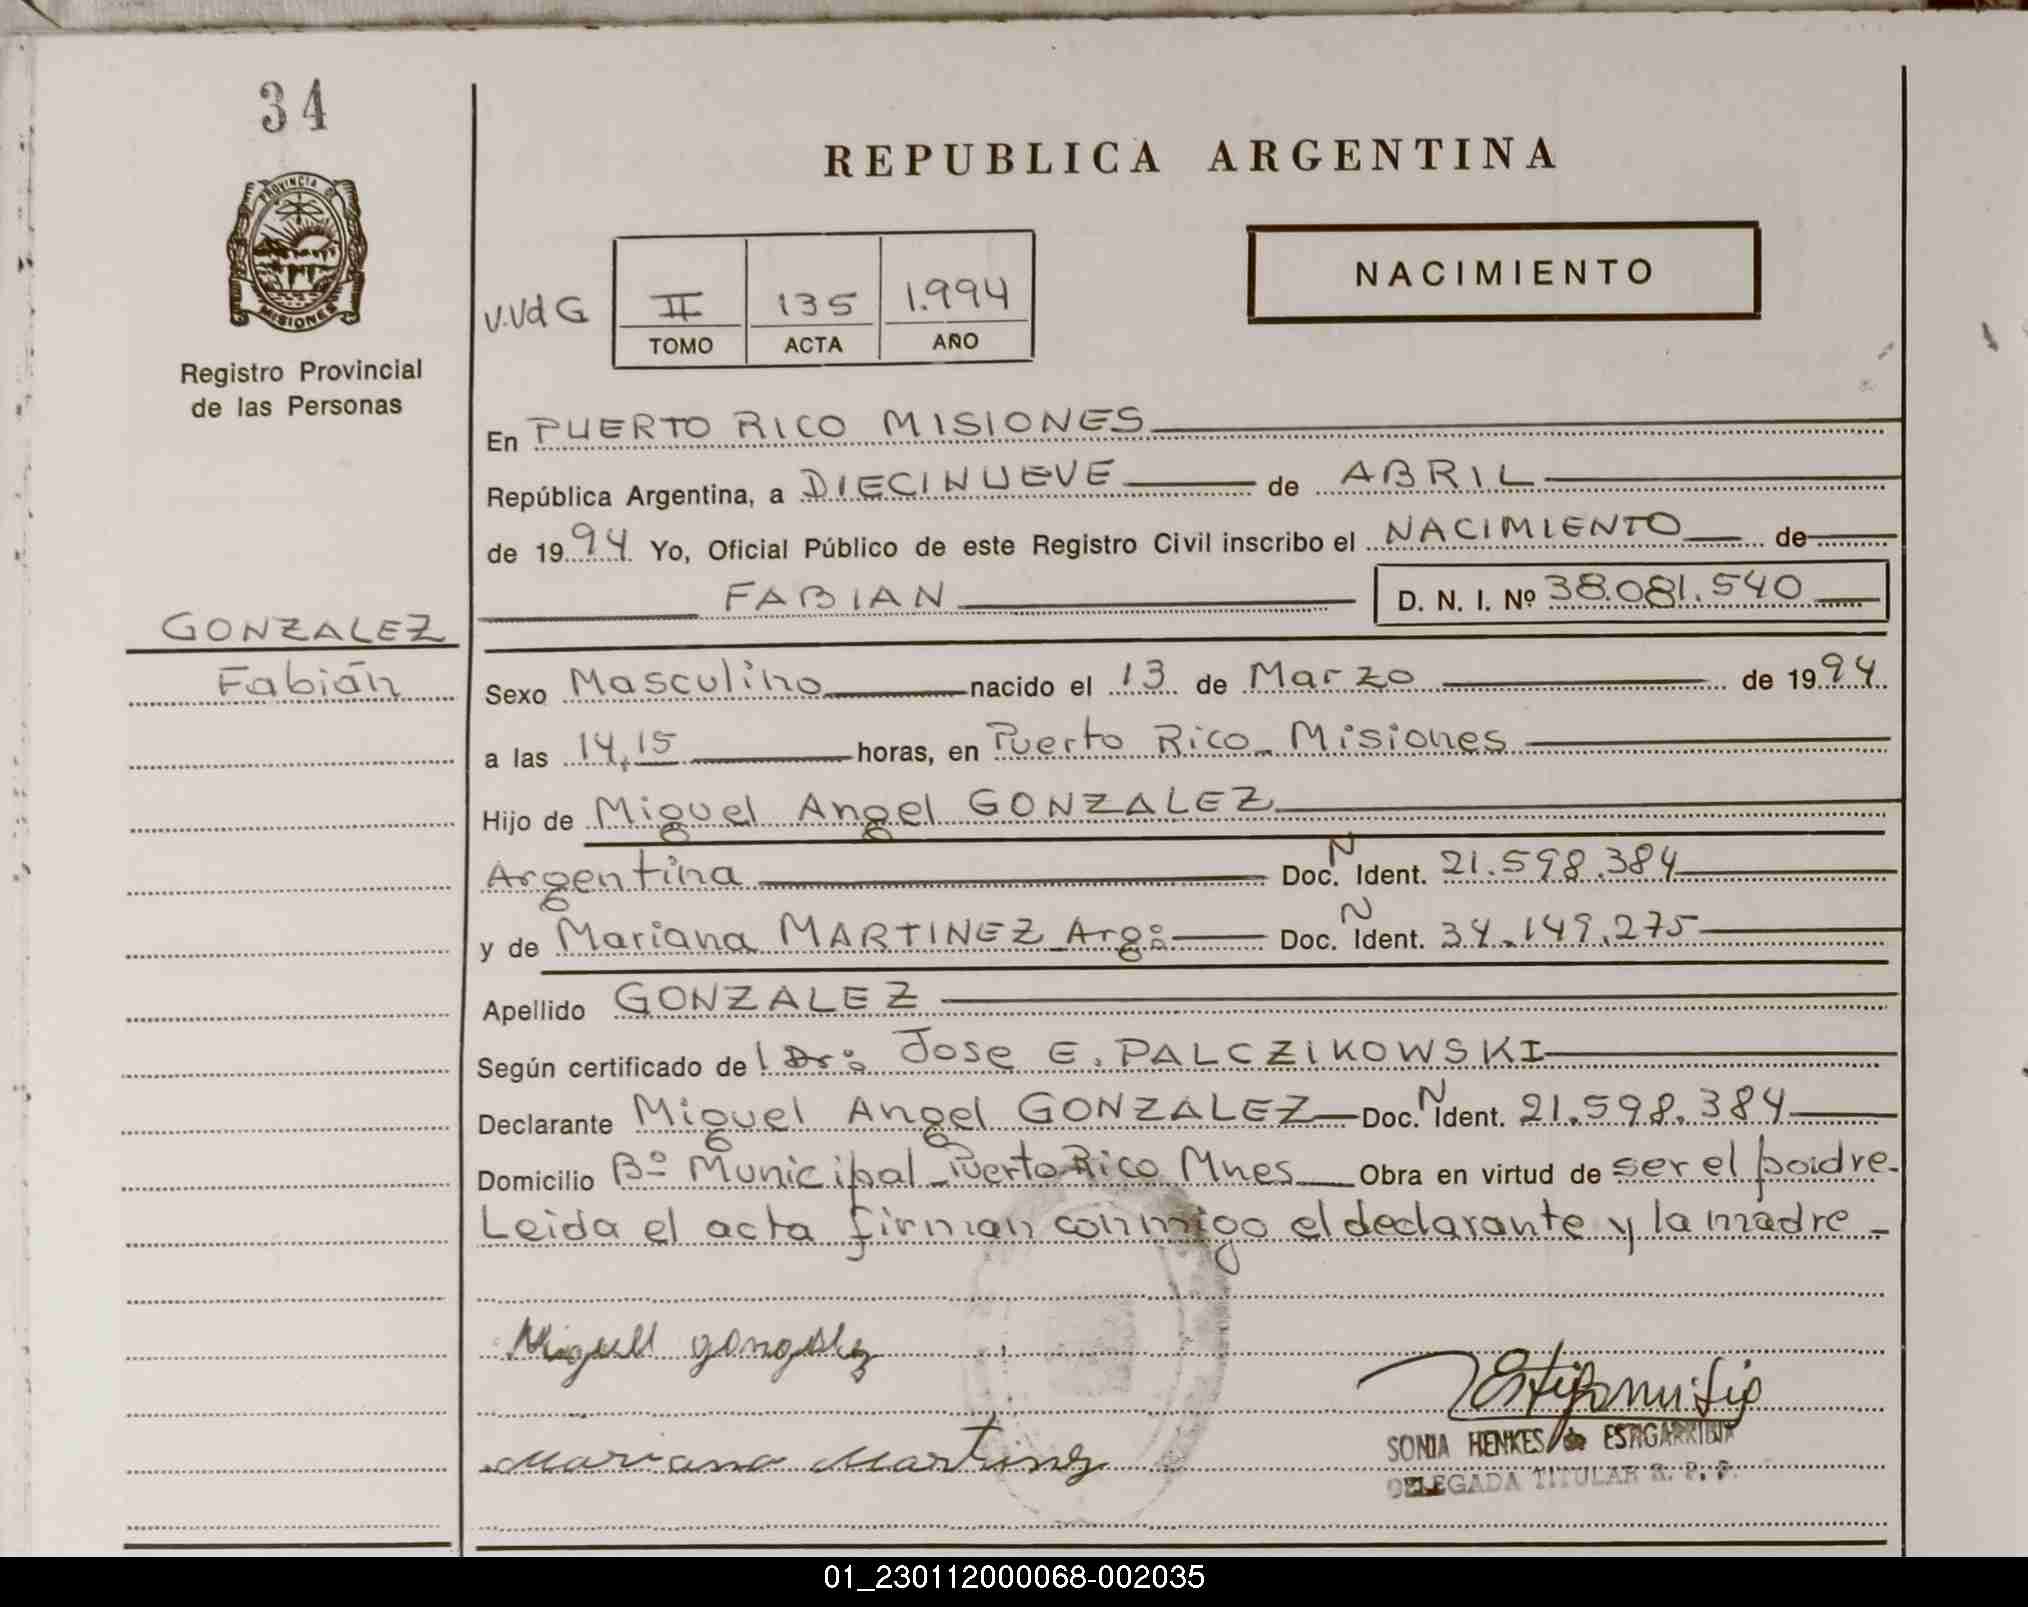 34
PROVINCIA DE
MISIONES
Registro Provincial
de las Personas
GONZALEZ
Fabián
REPUBLICA ARGENTINA
NACIMIENTO
V.VdG
II 135 1.994
TOMO ACTA AÑO
En PUERTO RICO MISIONES
República Argentina, a DIECINUEVE de ABRIL
de 1994 Yo, Oficial Público de este Registro Civil inscribo el NACIMIENTO de
FABIAN D. N. I. Nº 38.081.540
Sexo Masculino nacido el 13 de Marzo de 1994
a las 14,15 horas, en Puerto Rico - Misiones
Hijo de Miguel Angel GONZALEZ
Argentina Doc. N Ident. 21.598.384
y de Mariana MARTINEZ Arg: Doc. N Ident. 34.149.275
Apellido GONZALEZ
Según certificado de l Dr: Jose E. PALCZIKOWSKI
Declarante Miguel Angel GONZALEZ Doc. N Ident. 21.598.384
Domicilio Bº Municipal - Puerto Rico Mnes Obra en virtud de ser el padre-
Leida el acta firman conmigo el declarante y la madre -
Miguel gonzalez
Mariana Martinez
SONIA HENKES de ESTIGARRIBIA
DELEGADA TITULAR R. P. P.
01_230112000068-002035